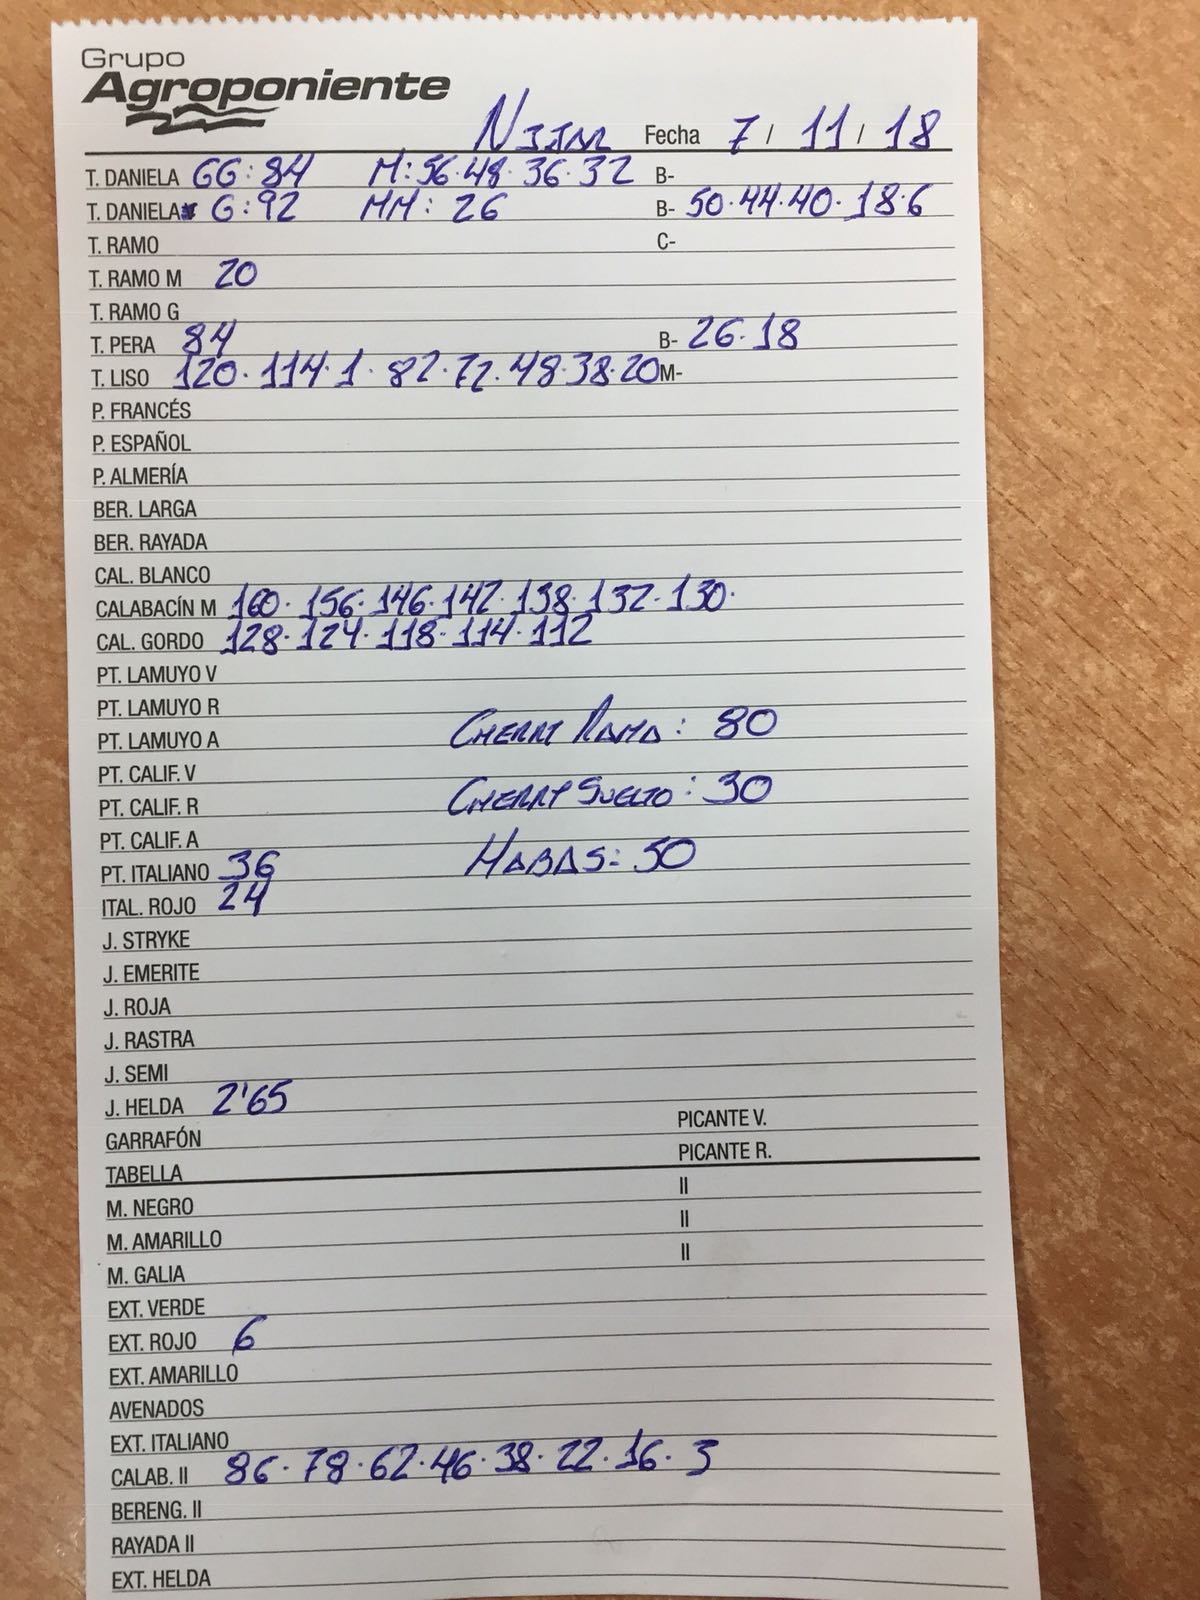 Grupo
Agroponiente
NIJAR Fecha 7 / 11 / 18
T. DANIELA GG: 84 M: 56·48·36·32 B-
T. DANIELA G: 92 MM: 26 B- 50·44·40·18·6
T. RAMO C-
T. RAMO M 20
T. RAMO G
T. PERA 84 B- 26·18
T. LISO 120·114·1·82·72·48·38·20 M-
P. FRANCÉS
P. ESPAÑOL
P. ALMERÍA
BER. LARGA
BER. RAYADA
CAL. BLANCO
CALABACÍN M 160·156·146·142·138·132·130·
CAL. GORDO 128·124·118·114·112
PT. LAMUYO V
PT. LAMUYO R
PT. LAMUYO A CHERRY RAMA: 80
PT. CALIF. V
PT. CALIF. R CHERRY SUELTO: 30
PT. CALIF. A
PT. ITALIANO 36 HABAS: 50
ITAL. ROJO 24
J. STRYKE
J. EMERITE
J. ROJA
J. RASTRA
J. SEMI
J. HELDA 2'65
GARRAFÓN PICANTE V.
TABELLA PICANTE R.
M. NEGRO II
M. AMARILLO II
M. GALIA II
EXT. VERDE
EXT. ROJO 6
EXT. AMARILLO
AVENADOS
EXT. ITALIANO
CALAB. II 86·78·62·46·38·22·16·3
BERENG. II
RAYADA II
EXT. HELDA